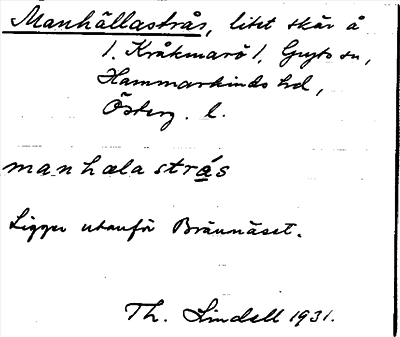 Manhällastrås, litet skär å
1. Kråkmarö 1, Gryts sn,
Hammarkinds hd,
Österg. l.
manhælastrás
Ligger utanför Brännäset.
Th. Lindell 1931.